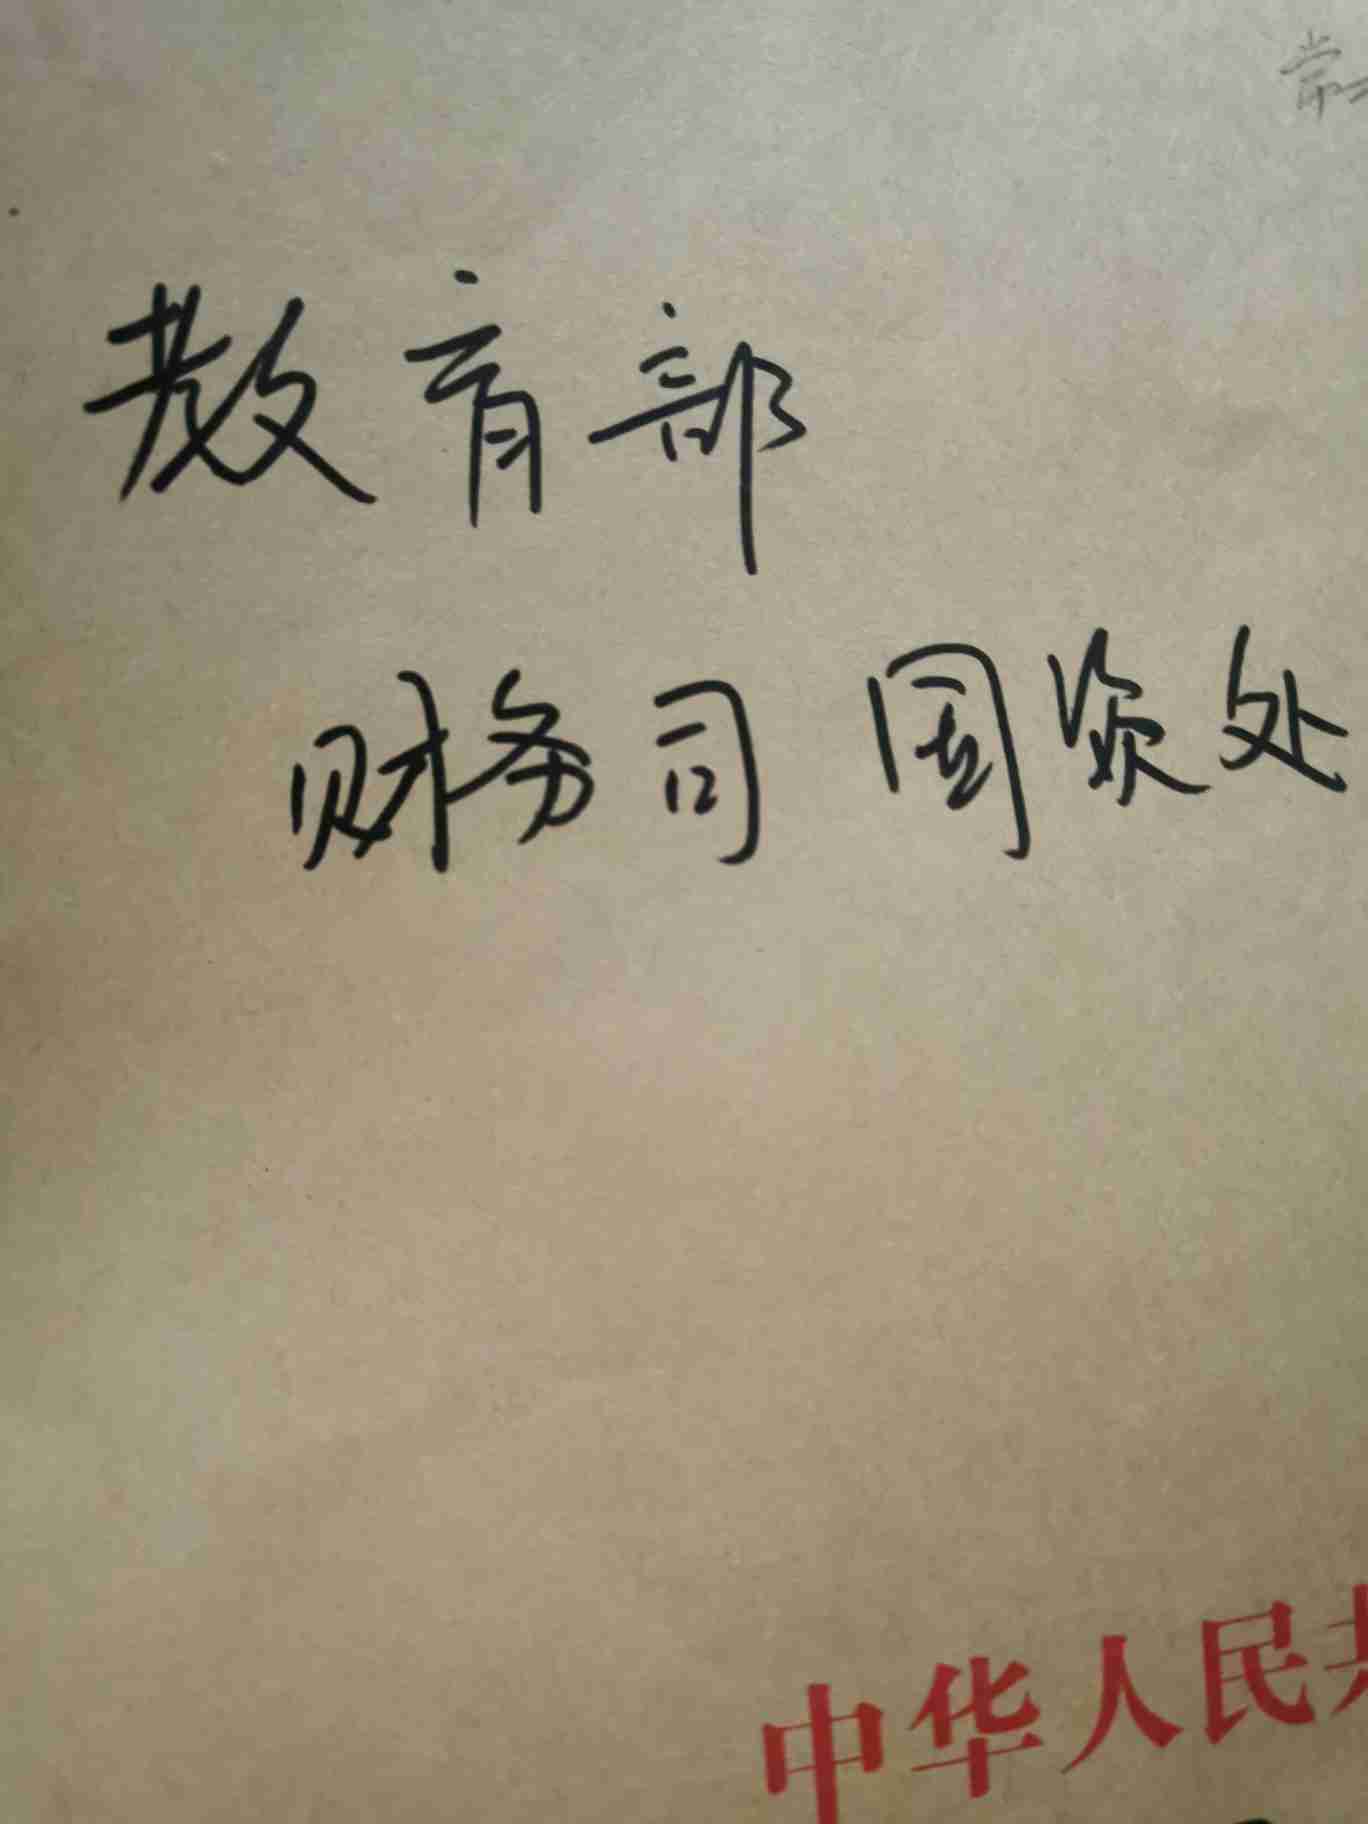 常
教育部
财务司 国资处
中华人民共